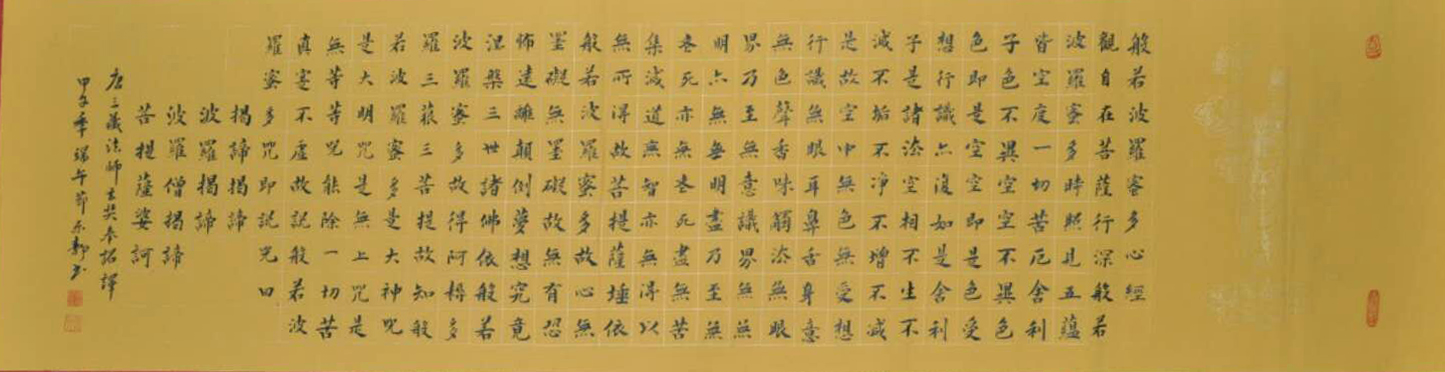 般若波羅蜜多心經
觀自在菩薩行深般若
波羅蜜多時照見五蘊
皆空度一切苦厄舍利
子色不異空空不異色
色即是空空即是色受
想行識亦復如是舍利
子是諸法空相不生不
滅不垢不淨不增不減
是故空中無色無受想
行識無眼耳鼻舌身意
無色聲香味觸法無眼
界乃至無意識界無無
明亦無無明盡乃至無
老死亦無老死盡無苦
集滅道無智亦無得以
無所得故菩提薩埵依
般若波羅蜜多故心無
罣礙無罣礙故無有恐
怖遠離顛倒夢想究竟
涅槃三世諸佛依般若
波羅蜜多故得阿耨多
羅三藐三菩提故知般
若波羅蜜多是大神咒
是大明咒是無上咒是
無等等咒能除一切苦
真實不虛故說般若波
羅蜜多咒即說咒曰
揭諦揭諦
波羅揭諦
波羅僧揭諦
菩提薩婆訶
唐三藏法師玄奘奉詔譯
甲午年端午節